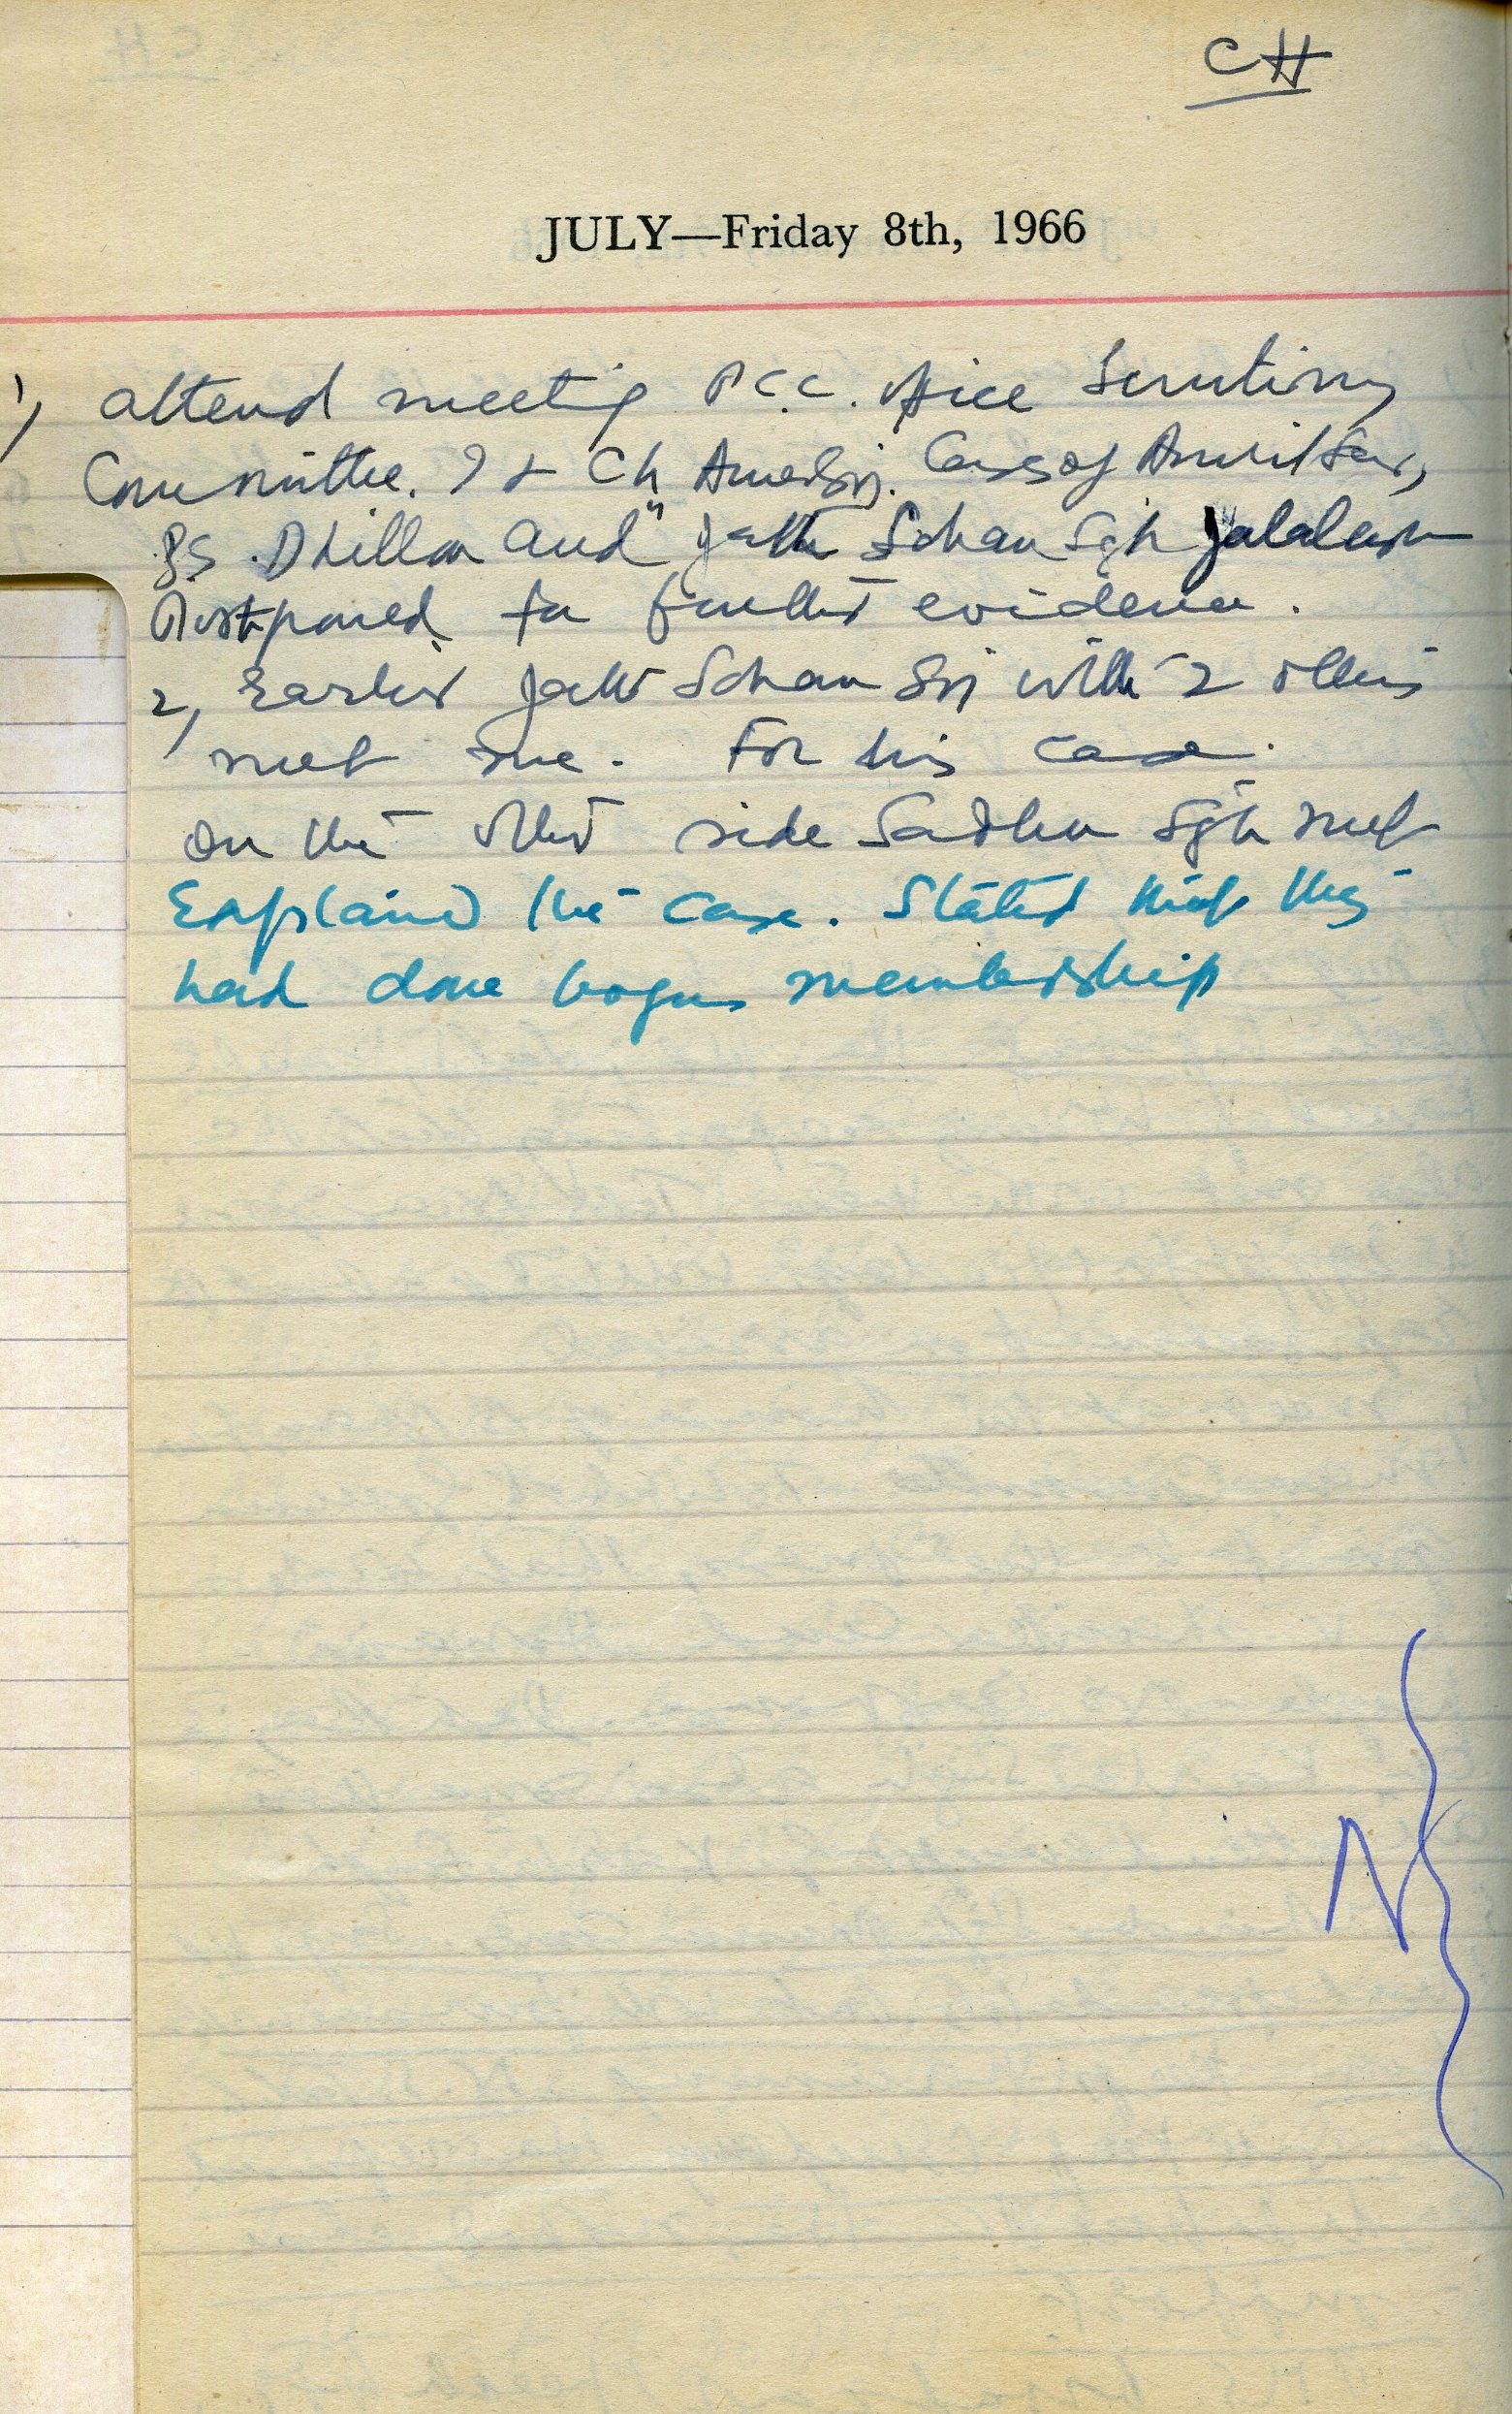 CH
JULY—Friday 8th, 1966
1, attend meeting P.C.C. office Scrutiny
Committee. I & Ch Amar Sij. Cases of Amritsar,
Dhillon and Jath Sohan Sgh
Postponed for further evidence.
2, Earlier Jath Sohan Sij with 2 others
met me. For his case.
On the other side Sadhu Sgh met
Explained the case. Stated that they
had done bogus membership
N